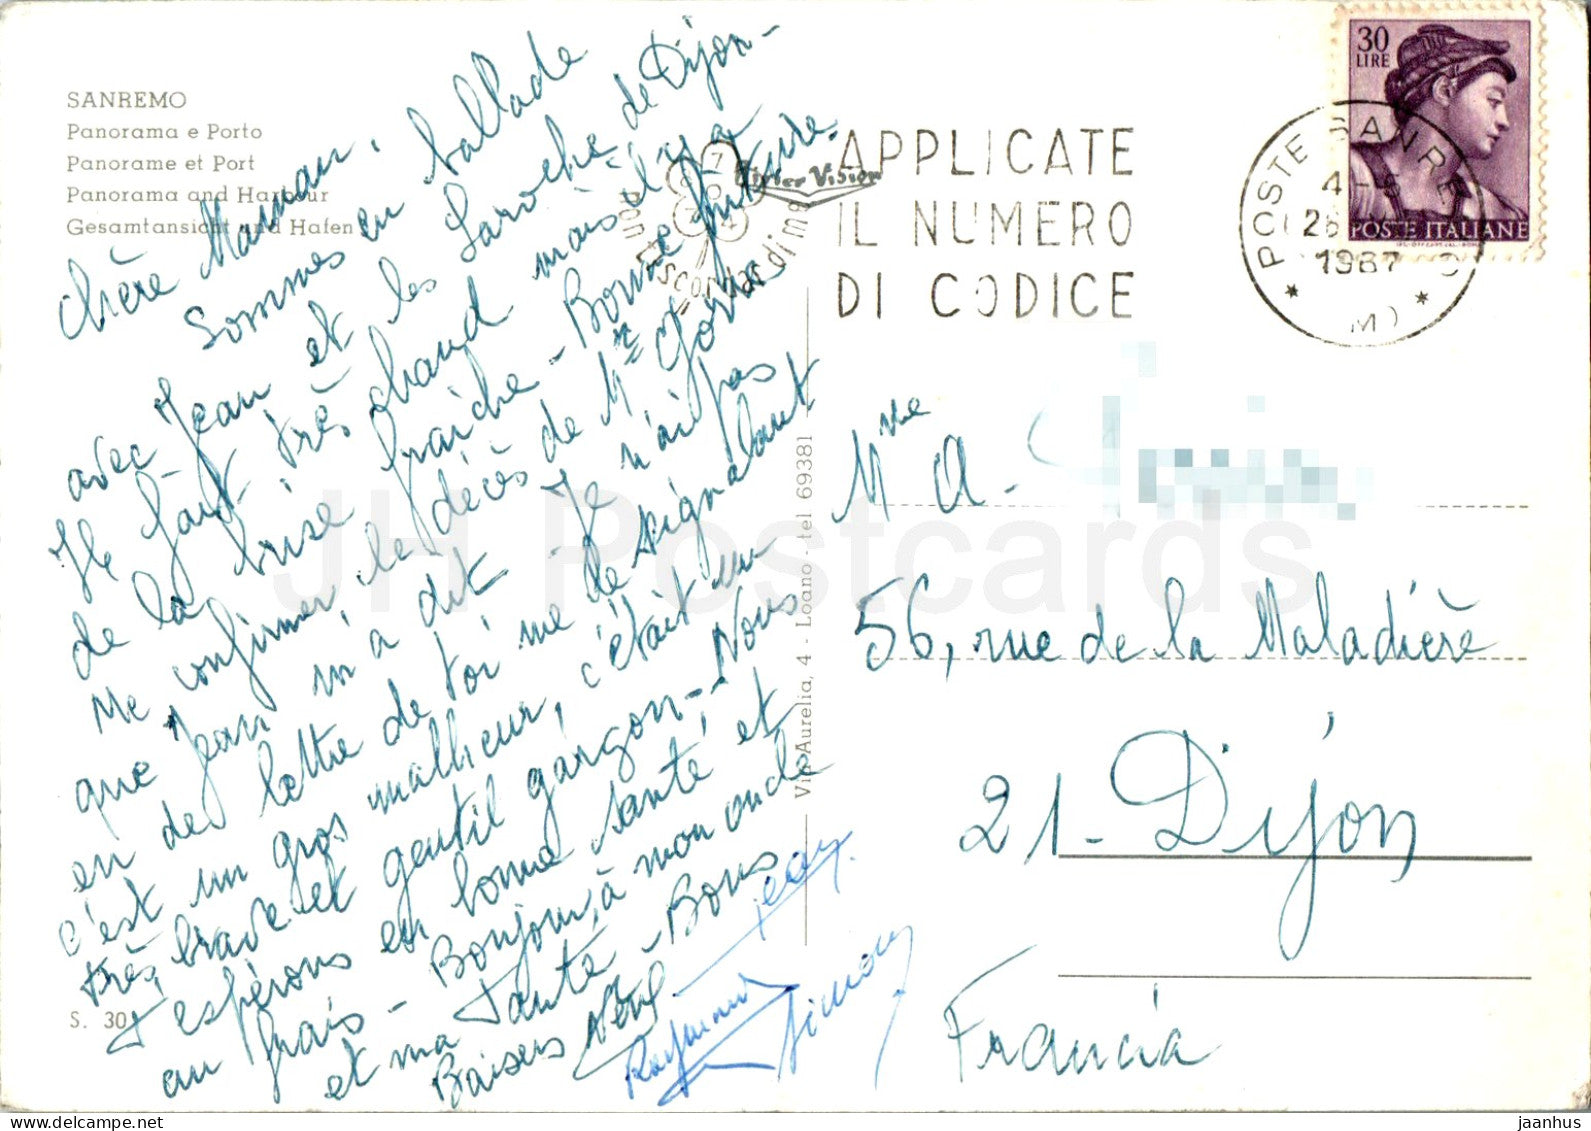 SANREMO
Panorama e Porto
Panorame et Port
Panorama and Harbour
Gesamtansicht und Hafen
chère Maman,
Sommes en ballade
avec Jean et les Laroche de Dijon -
Il fait très chaud mais il y a
de la brise fraîche - Bonne friture.
Me confirmer le décès de Mr
que Jean m'a dit - Je n'ai pas
eu de lettre de toi me le signalant
c'est un gros malheur, c'était un
très brave et gentil garçon - Nous
t'espérons en bonne santé et
au frais - Bonjour à mon oncle
et ma Tante - Bons
Baisers
Jean.
Raymond
Simone
S. 30
Via Aurelia, 4 - Loano - tel 69381
non scordar di me
APPLICATE
IL NUMERO
DI CODICE
POSTE SANREMO
26
1967
30
LIRE
POSTE ITALIANE
Mme A.
56, rue de la Maladière
21 - Dijon
Francia
JH Postcards
delcampe.net
jaanhus